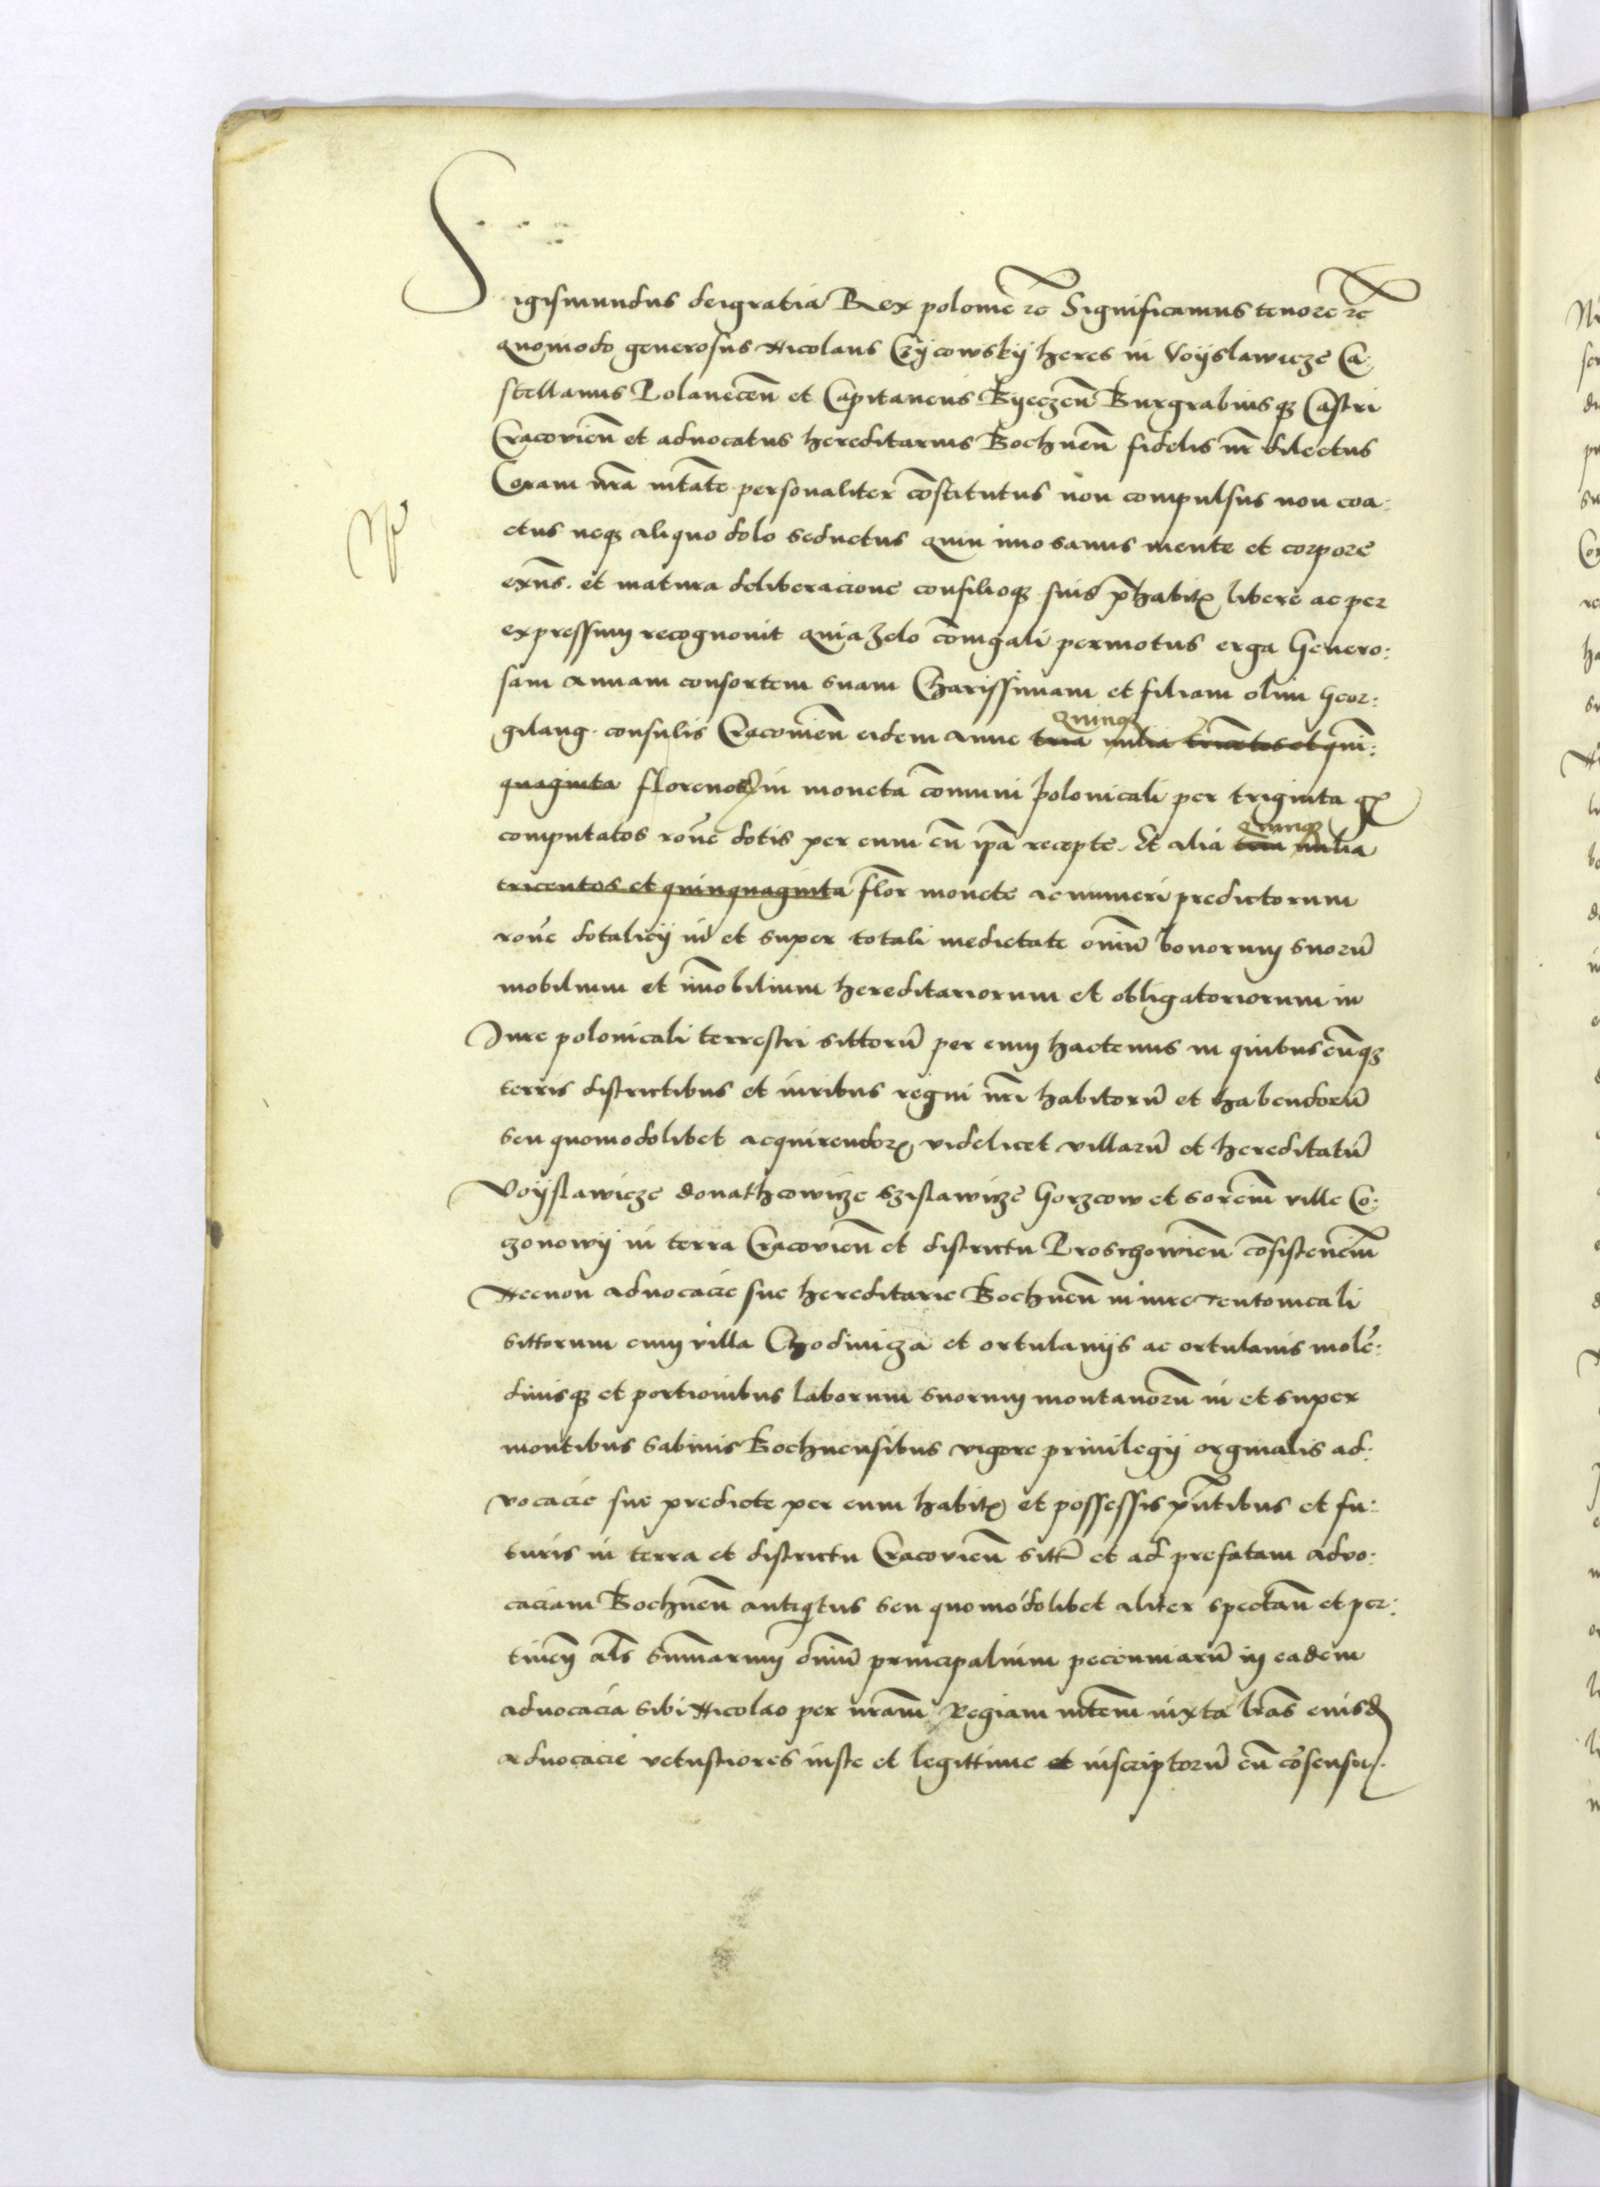 Sigismundus deigratia Rex polonie ꝛc̄ Significamus tenore ꝛc̄
quomodo generosus Nicolaus Czijcowskij heres in Voijslawicze Ca:
stellanus Polanecen̄ et Capitaneus Byeczen̄ Burgrabiusqꝫ Castri
Cracovien̄ et advocatus hereditarius Bochnen̄ fidelis nr̄ dilectus
Coram nr̄a mtāte personaliter cōstitutus non compulsus non coa:
ctus neqꝫ aliquo dolo seductus quin imo sanus mente et corpore
exn̄s. et matura deliberacione consilioqꝫ suis p̄habitꝭ libere ac per
expressum recognovit quia zelo cōiugali permotus erga Genero:
sam Annam consortem suam Charissimam et filiam olim Geor:
gilang consulis Cracovien̄ eidem Anne tria quinqꝫ milia tricētos et quin̄:
quaginta florenos in moneta cōmuni polonicali per triginta gꝭ
computatos rōne dotis per eum cū ip̄a recepte. Et alia tria quinqꝫ milia
tricentos et quinquaginta flor̄ monete ac numeri predictorum
rōne dotalicij in et super totali medietate om̄iū bonorum suorū
mobilium et īmobilium hereditariorum et obligatoriorum in
Iure polonicali terrestri sittorū per eum hactenus in quibuscūqꝫ
terris districtibus et iuribus regni nr̄i habitorū et habendorū
seu quomodolibet acquirendorꝝ videlicet villarū et hereditatū
Voijslawicze donathcowicze Szislawicze Gorzcow et sortem ville Co:
czonowij in terra Cracovien̄ et districtu Proschowien̄ cōsistenciū
Necnon advocacie sue hereditarie Bochnen̄ in iure teutonicali
sittorum cum villa Chodenicza et ortulanijs ac ortulanis molē:
dinisqꝫ et portionibus laborum suorum montanorū in et super
montibus sabinis Bochnensibus vigore privilegij orginalis ad:
vocacie sue predicte per eum habitꝭ et possessis pn̄tibus et fu:
turis in terra et districtu Cracovien̄ sitt̄ et ad prefatam advo:
caciam Bochnen̄ antiqtus seu quomodolibet aliter spectan̄ et per:
tinen̄ al̄s sum̄arum om̄iū principalium pecuniarū in eadem
advocacia sibi Nicolao per nr̄am Regiam mtem̄ iuxta lr̄as eiusd̄
advocacie vetustiores iuste et legittime et inscriptorū cū cōsensu.